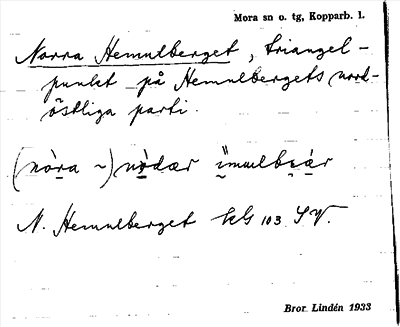 Mora sn o. tg, Kopparb. l.
Norra Hemulberget, triangel-
punkt på Hemulbergets nord-
östliga parti.
(nòra ~) nòdær
N. Hemulberget kbl 103 SV.
Bror Lindén 1933